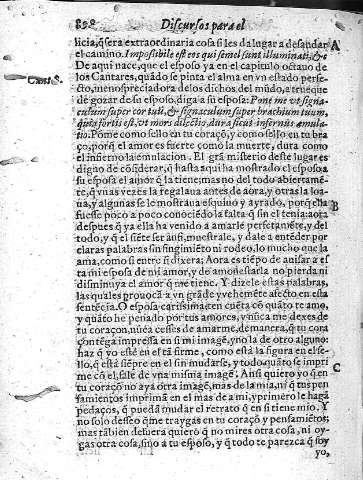 898 Discursos para el
licia, q̃ sera extraordinaria cosa si les da lugar a desandar A
el camino. Impossibile est eos qui semel sunt illuminati, &c.
De aqui nace, que el esposo ya en el capitulo octauo de
Cant. 8. los Cantares, quãdo se pinta el alma en vn estado perfe-
cto, menospreciadora de los dichos del mũdo, a trueque
de gozar de su esposo, diga a su esposa: Pone me vt signa-
culum super cor tuũ, & signaculum super brachium tuum,
quia fortis est, vt mors dilectio, dura sicut infernus emula-
tio. Pome como sello en tu coraçõ, y como sello en tu bra
ço, porq̃ el amor es fuerte como la muerte, dura como
el infierno la emulacion. El grã misterio deste lugar es
digno de cõsiderar, q̃ hasta aqui ha mostrado el esposo a
su esposa el amor q̃ la tiene, mas no del todo abiertamẽ
te, q̃ vnas vezes la regalaua antes de aora, y otras la loa-
ua, y algunas se le mostraua esquiuo y ayrado, porq̃ ella B
fuesse poco a poco conociẽdo la falta q̃ sin el tenia: aora
despues q̃ ya ella ha venido a amarle perfetamẽte, y del
todo, y q̃ el siẽte ser assi, muestrale, y dale a entẽder por
claras palabras sin fingimiẽto ni rodeo, lo mucho que la
ama, como si entre si dixera; Aora es tiẽpo de auisar a es
ta mi esposa de mi amor, y de amonestarla no pierda ni
disminuya el amor q̃ me tiene. Y dizele estas palabras,
las quales prouocã a vn grãde y vehemẽte afecto en esta
sentẽcia. O esposa carissima, en cuẽta cõ quãto te amo,
y quãto he penado por tus amores, y nũca me dexes de
tu coraçon, nũca cesses de amarme, de manera, q̃ tu cora
çon tẽga impressa en si mi imagẽ, y no la de otro alguno:
haz q̃ yo estè en el tã firme, como està la figura en el se-
llo, q̃ està siẽpre en el sin mudarse, y todo quãto se impri C
me cõ el, sale de vna misma imagẽ. Ansi quiero yo q̃ en
tu coraçõ no aya otra imagẽ, mas de la mia, ni q̃ tus pen
samientos imprimã en el mas de a mi, y primero le hagã
pedaços, q̃ pueda mudar el retrato q̃ en si tiene mio. Y
no solo desseo q̃ me traygas en tu coraçõ y pensamiẽtos;
mas tãbien defuera quiero q̃ no mires otra cosa, ni oy-
gas otra cosa, sino a tu esposo, y q̃ todo te parezca q̃ soy
yo,